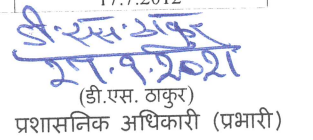 17.7.2012
डी.एस.ठाकुर
27.9.2021
(डी.एस. ठाकुर)
प्रशासनिक अधिकारी (प्रभारी)